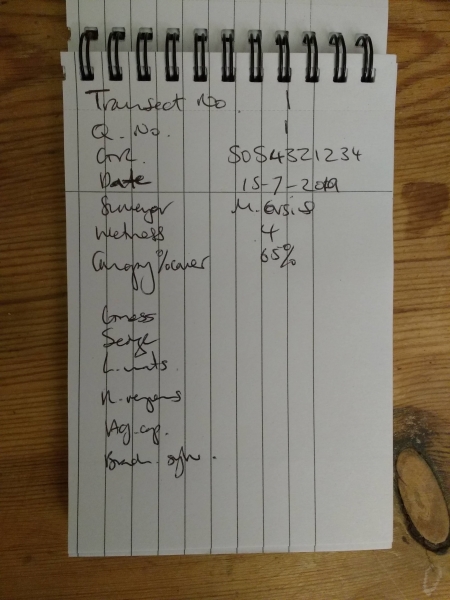 Transect No. 1
Q. No. 1
GR. SO54321234
Date 15-7-2019
Surveyor M.
Wetness 4
Canopy % cover 65%
Grass
Sedge
R. repens
Ag. cap.
Brach. sylv.